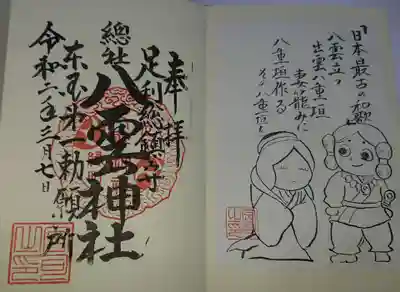 奉拝
足利総鎮守
總社
八雲神社
東国第一勅願所
令和二年三月七日
「日本最古の和歌」
八雲立つ
出雲八重垣
妻籠みに
八重垣作る
その八重垣を